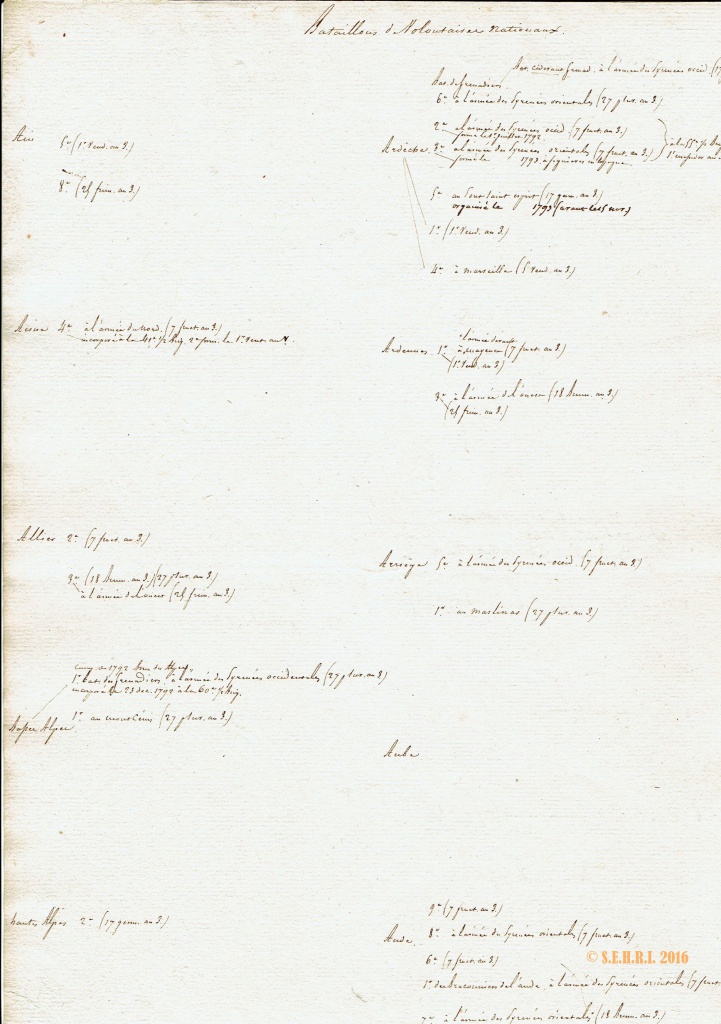 Bataillons de Volontaires nationaux.
Ain
5e (1er Vend. an 3.)
8e (25 frim. an 3.)
Aisne 4e à l'armée du nord. (7 fruct. an 2.)
incorporé à la 41e 1/2 brig. 2e form. le 1er Vent. an 4.
Allier 2e (7 fruct. an 2.)
3e (18 Brum. an 3.) (27 pluv. an 3.)
à l'armée de l'ouest (25 frim. an 3.)
1er Bat. de Grenadiers, à l'armée des Pyrenées occidentales (27 pluv. an 3)
incorporé le 23 dec. 1792 à la 60e 1/2 brig.
Basses Alpes
1er au mont Cénis (27 pluv. an 3.)
hautes Alpes 2e (17 germ. an 3.)
à l'armée des Pyrenées occid.
Bat. de Grenadiers
6e à l'armée des Pyrenées orientales (27 pluv. an 3.)
2e à l'armée des Pyrenées occid. (7 fruct. an 2.)
Ardèche 3e à l'armée des Pyrenées orientales (7 fruct. an 2.)
formé le 1793, à figuieres en Espagne.
5e au Pont Saint esprit (17 germ. an 3.)
organisé le 1793 (avant le 5 nov.)
1er (1er Vend. an 3.)
4e à marseille (5 Vend. an 3.)
Ardennes 1er (7 fruct. an 2.)
(1er Vend. an 3)
3e à l'armée de l'ouest (18 Brum. an 3.)
(25 frim. an 3.)
Arriège 5e à l'armée des Pyrenées occid. (7 fruct. an 2.)
1er (27 pluv. an 3.)
Aube
9e (7 fruct. an 2.)
Aude. 8e à l'armée des Pyrenées orientales (7 fruct. an 2.)
6e (7 fruct. an 2.)
1er des braconniers de l'aude, à l'armée des Pyrenées orientales (7 fruct.
7e à l'armée des Pyrenées orientales (18 Brum. an 3.)
© S.E.H.R.I. 2016